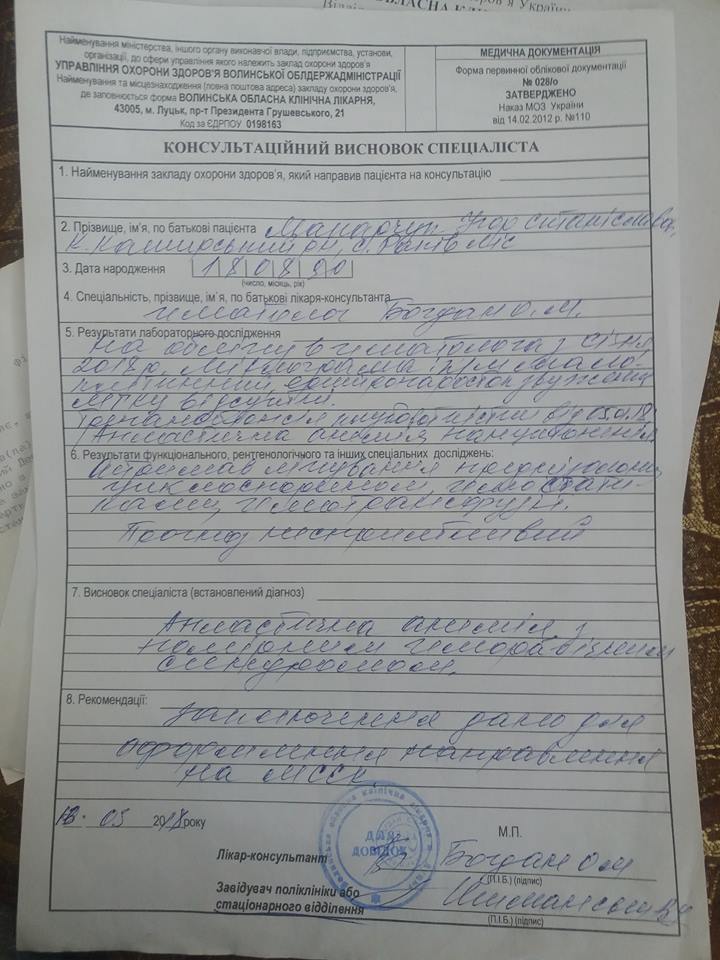 Найменування міністерства, іншого органу виконавчої влади, підприємства, установи,
організації, до сфери управління якого належить заклад охорони здоров'я
УПРАВЛІННЯ ОХОРОНИ ЗДОРОВ'Я ВОЛИНСЬКОЇ ОБЛДЕРЖАДМІНІСТРАЦІЇ
Найменування та місцезнаходження (повна поштова адреса) закладу охорони здоров'я,
де заповнюється форма ВОЛИНСЬКА ОБЛАСНА КЛІНІЧНА ЛІКАРНЯ,
43005, м. Луцьк, пр-т Президента Грушевського, 21
Код за ЄДРПОУ 0198163
МЕДИЧНА ДОКУМЕНТАЦІЯ
Форма первинної облікової документації
№ 028/о
ЗАТВЕРДЖЕНО
Наказ МОЗ України
від 14.02.2012 р. №110
КОНСУЛЬТАЦІЙНИЙ ВИСНОВОК СПЕЦІАЛІСТА
1. Найменування закладу охорони здоров'я, який направив пацієнта на консультацію
2. Прізвище, ім'я, по батькові пацієнта
К. Каширський рн, с.
3. Дата народження 180890
(число, місяць, рік)
4. Спеціальність, прізвище, ім'я, по батькові лікаря-консультанта
гематолог Богдан О.М.
5. Результати лабораторного дослідження
На обліку в гематолога з січня
2017р.
відсутні.
від 03.01.18
Апластична анемія
6. Результати функціонального, рентгенологічного та інших спеціальних досліджень:
лікування
циклоспорином, гемостати-
ками, гемотрансфузії.
Прогноз несприятливий
7. Висновок спеціаліста (встановлений діагноз)
Апластична анемія з
геморагічним
синдромом.
8. Рекомендації:
Заключення дано для
оформлення направлення
на МСЕК
05 2018 року
М.П.
ДЛЯ
ДОВІДОК
Лікар-консультант Богдан О.М
(П.І.Б.) (підпис)
Завідувач поліклініки або
стаціонарного відділення
(П.І.Б.) (підпис)